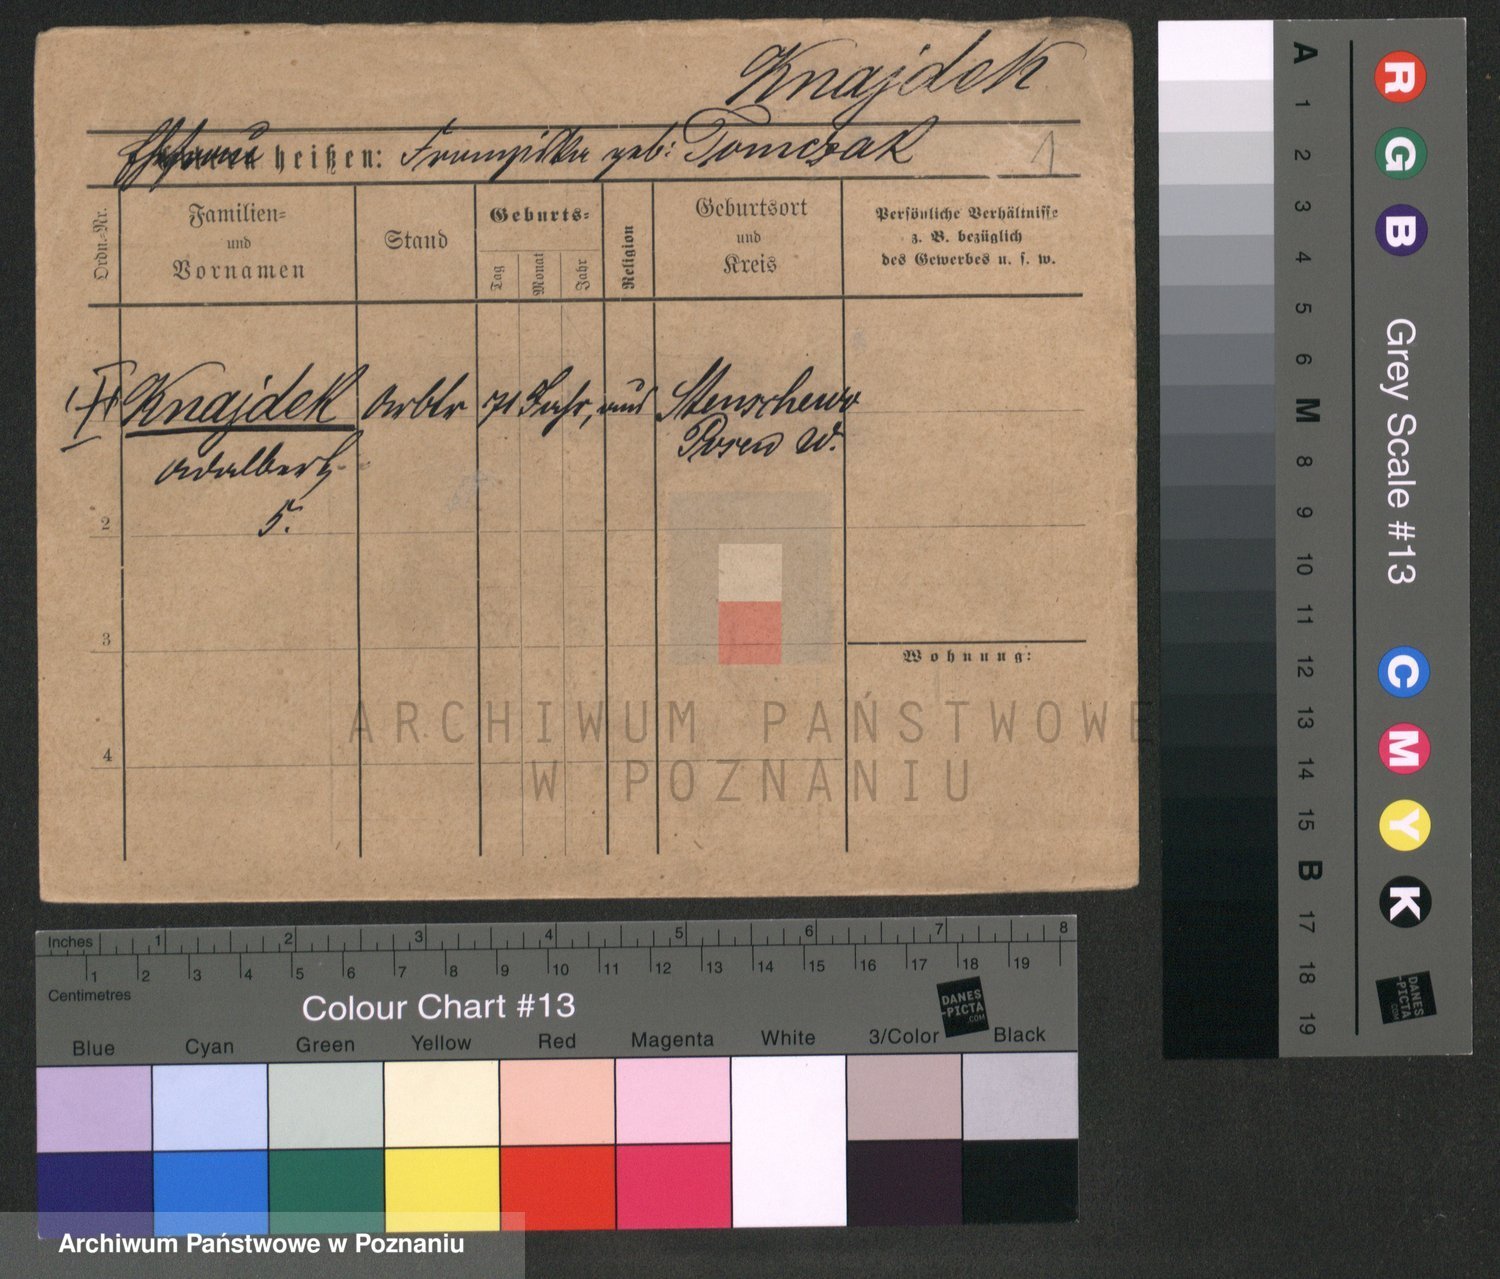 Knajdek
Ehefrau heißen: Franziska geb: Tomczak 1
Ordn.-Nr.
Familien-
und
Vornamen
Stand
Geburts-
Tag
Monat
Jahr
Religion
Geburtsort
und
Kreis
Persönliche Verhältnisse
z. B. bezüglich
des Gewerbes u. s. w.
Knajdek Arbtr 71 Jahr, aus Stenschewo
Adalbert Posen W.
5.
2
3
4
Wohnung:
ARCHIWUM PAŃSTWOWE
W POZNANIU
Inches 1 2 3 4 5 6 7 8
1 2 3 4 5 6 7 8 9 10 11 12 13 14 15 16 17 18 19
Centimetres
Colour Chart #13
DANES
-PICTA
.COM
Blue Cyan Green Yellow Red Magenta White 3/Color Black
Archiwum Państwowe w Poznaniu
A 1 2 3 4 5 6 M 8 9 10 11 12 13 14 15 B 17 18 19
R G B Grey Scale #13 C M Y K
DANES
-PICTA
.COM